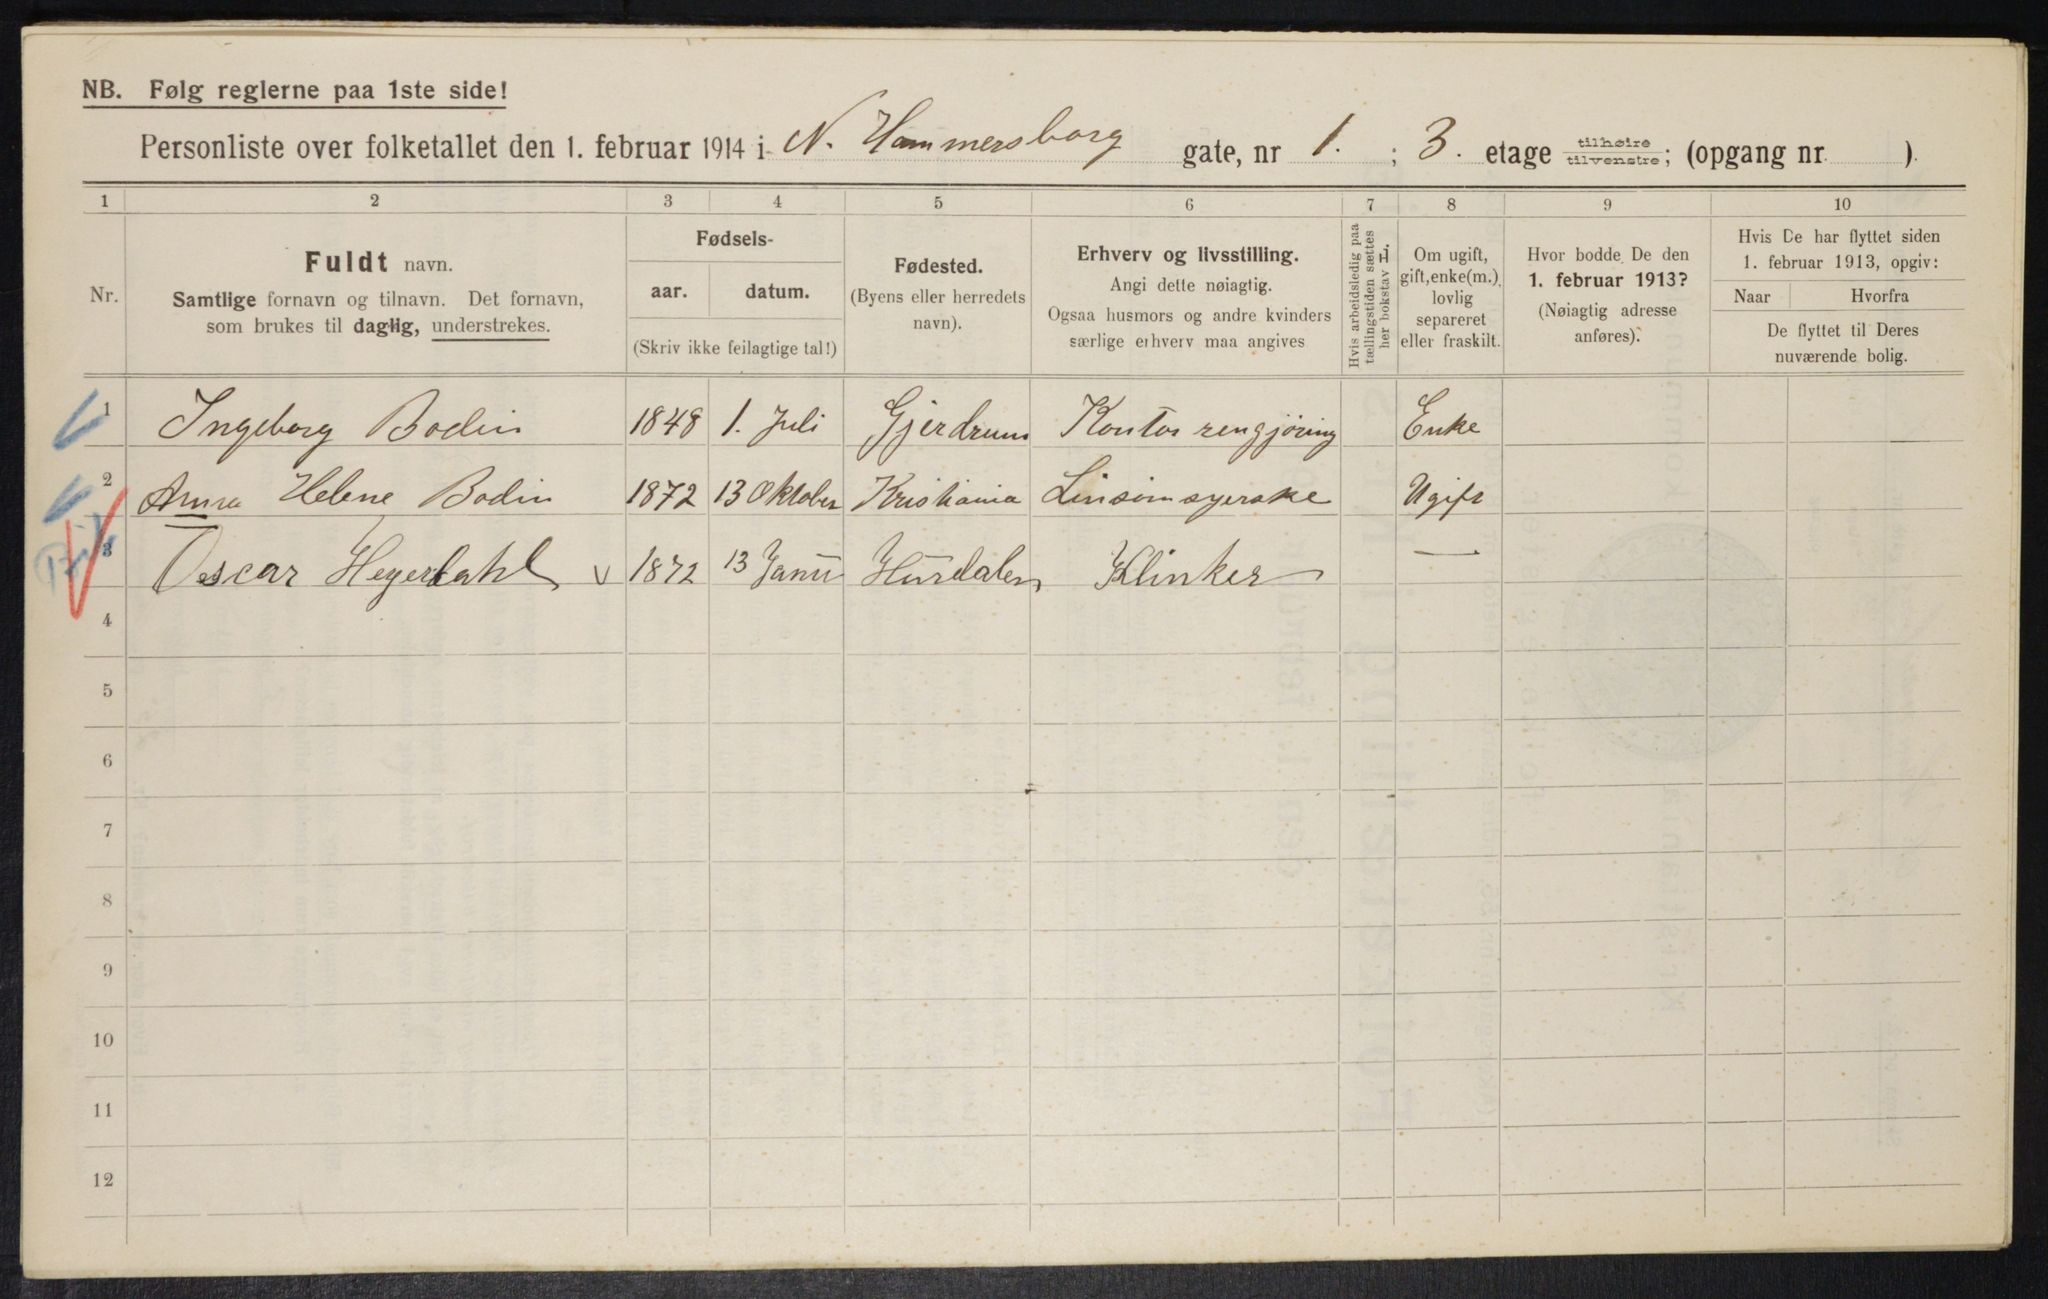 NB. Følg reglerne paa 1ste side!
Personliste over folketallet den 1. februar 1914 i N. Hammersborg gate, nr 1. ; 3. etage tilhøire tilvenstre; (opgang nr. ).
1 2 3 4 5 6 7 8 9 10
Nr.
Fuldt navn.
Samtlige fornavn og tilnavn. Det fornavn,
som brukes til daglig, understrekes.
Fødsels-
aar. datum.
(Skriv ikke feilagtige tal!)
Fødested.
(Byens eller herredets
navn).
Erhverv og livsstilling.
Angi dette nøiagtig.
Ogsaa husmors og andre kvinders
særlige erhverv maa angives
Hvis arbeidsledig paa
tællingstiden sættes
her bokstav L.
Om ugift,
gift, enke(m.),
lovlig
separeret
eller fraskilt.
Hvor bodde De den
1. februar 1913?
(Nøiagtig adresse
anføres).
Hvis De har flyttet siden
1. februar 1913, opgiv:
Naar Hvorfra
De flyttet til Deres
nuværende bolig.
1 Ingeborg Bodin 1848 1. Juli Gjerdrum Kontor rengjøring Enke
2 Anna Helene Bodin 1872 13 Oktober Kristiania Linsømsyerske Ugift
3 Oscar Hegerdahl v 1872 13 Janu Hurdalen Klinker —
4
5
6
7
8
9
10
11
12